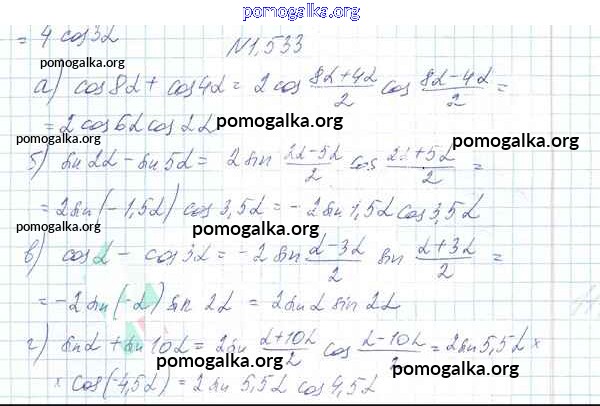 pomogalka.org
= 4 cos3α
N1,533
pomogalka.org
а) cos8α + cos4α = 2 cos (8α+4α)/2 cos (8α-4α)/2 =
= 2 cos6α cos2α pomogalka.org
pomogalka.org
б) sin2α - sin5α = 2 sin (2α-5α)/2 cos (2α+5α)/2 =
= 2sin(-1,5α) cos3,5α = -2sin1,5α cos3,5α
pomogalka.org
pomogalka.org
в) cosα - cos3α = -2 sin (α-3α)/2 sin (α+3α)/2 =
= -2 sin(-α) sin 2α = 2sinα sin 2α
г) sinα + sin10α = 2sin (α+10α)/2 cos (α-10α)/2 = 2sin5,5α ×
pomogalka.org pomogalka.org
× cos(-4,5α) = 2sin 5,5α cos4,5α